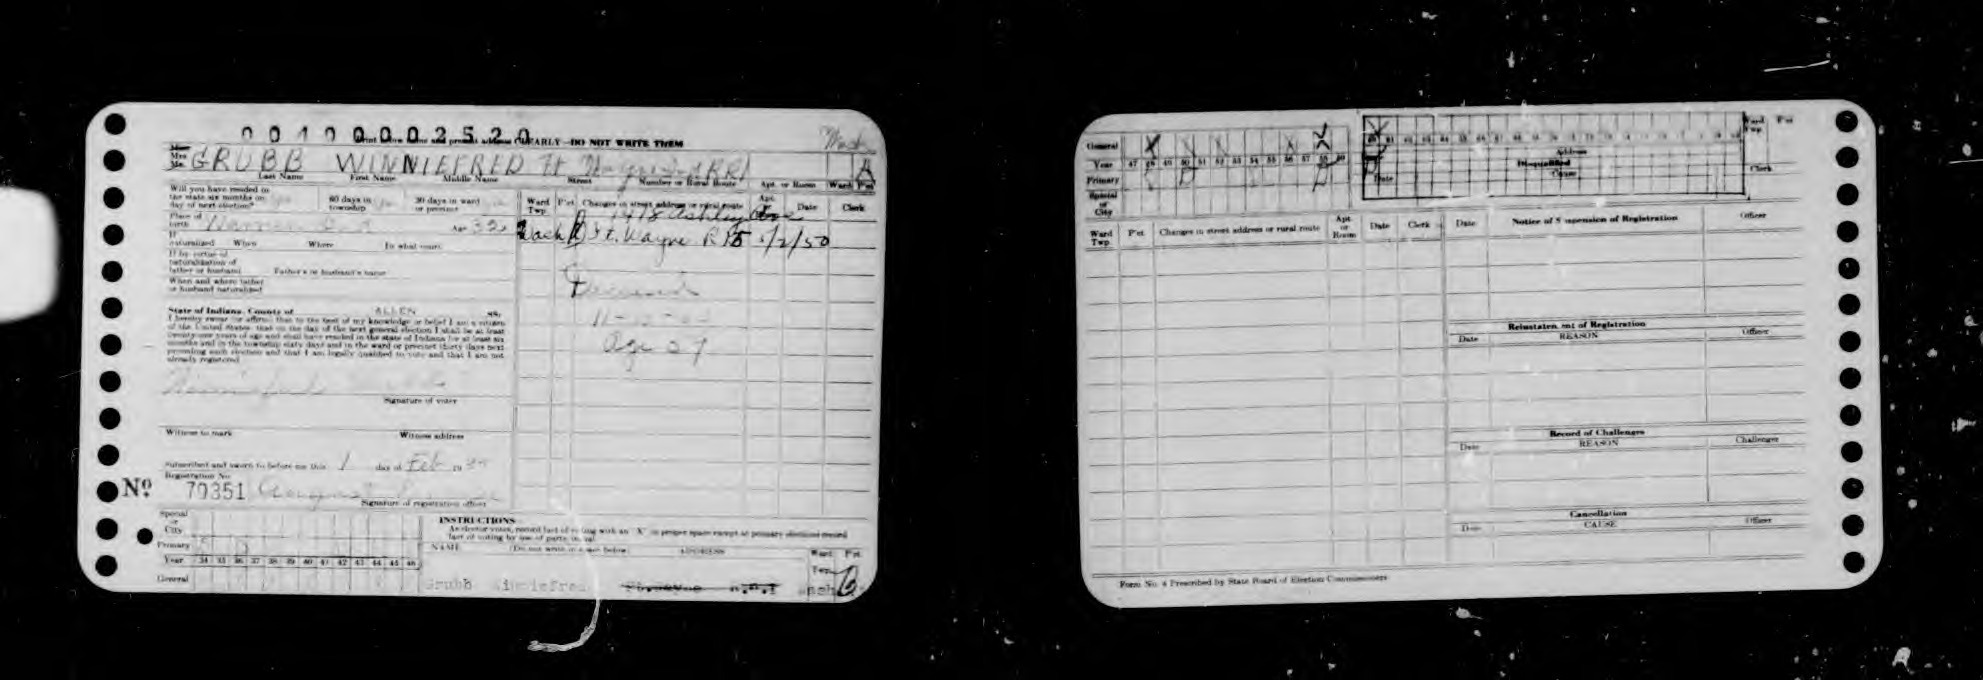 00100002520
CLEARLY—DO NOT WRITE THEM
Mrs. GRUBB WINNIEFRED Ft Wayne RR1 A
Last Name First Name Middle Name Street Number or Rural Route Apt. or Room Ward Pct
Will you have resided in the state six months on day of next election?
60 days in township
30 days in ward or precinct
Place of birth
Age 32
If naturalized When Where In what court
If by virtue of naturalization of father or husband Father's or husband's name
When and where father or husband naturalized
State of Indiana, County of ALLEN SS:
I hereby swear (or affirm) that to the best of my knowledge or belief I am a citizen
of the United States; that on the day of the next general election I shall be at least
twenty-one years of age and shall have resided in the state of Indiana for at least six
months and in the township sixty days and in the ward or precinct thirty days next
preceding such election and that I am legally qualified to vote and that I am not
already registered.
Signature of voter
Witness to mark Witness address
Subscribed and sworn to before me this 1 day of Feb 19
Registration No.
No. 70351
Signature of registration officer
Ward Twp. P'ct Changes in street address or rural route Apt. Date Clerk
1418 Ashley Ave
Wash Ft. Wayne R R5 5/2/50
Deceased
Age 57
Special or City
Primary
Year 34 35 36 37 38 39 40 41 42 43 44 45 46
General
INSTRUCTIONS
As elector votes, record fact of voting with an "X" in proper space except at primary elections record
fact of voting by use of party initial
NAME (Do not write in space below) ADDRESS Ward Twp. Pct.
Grubb Winniefred Ft. Wayne R.R.1 Wash
General
Year 47 48 49 50 51 52 53 54 55 56 57 58 59
Primary
Special or City
Address
Disqualified
Date Cause
Ward Twp. P'ct
Clerk
Ward Twp. P'ct Changes in street address or rural route Apt. or Room Date Clerk
Date Notice of Suspension of Registration Officer
Reinstatement of Registration
Date REASON Officer
Record of Challenges
Date REASON Challenger
Cancellation
Date CAUSE Officer
Form No. 4 Prescribed by State Board of Election Commissioners